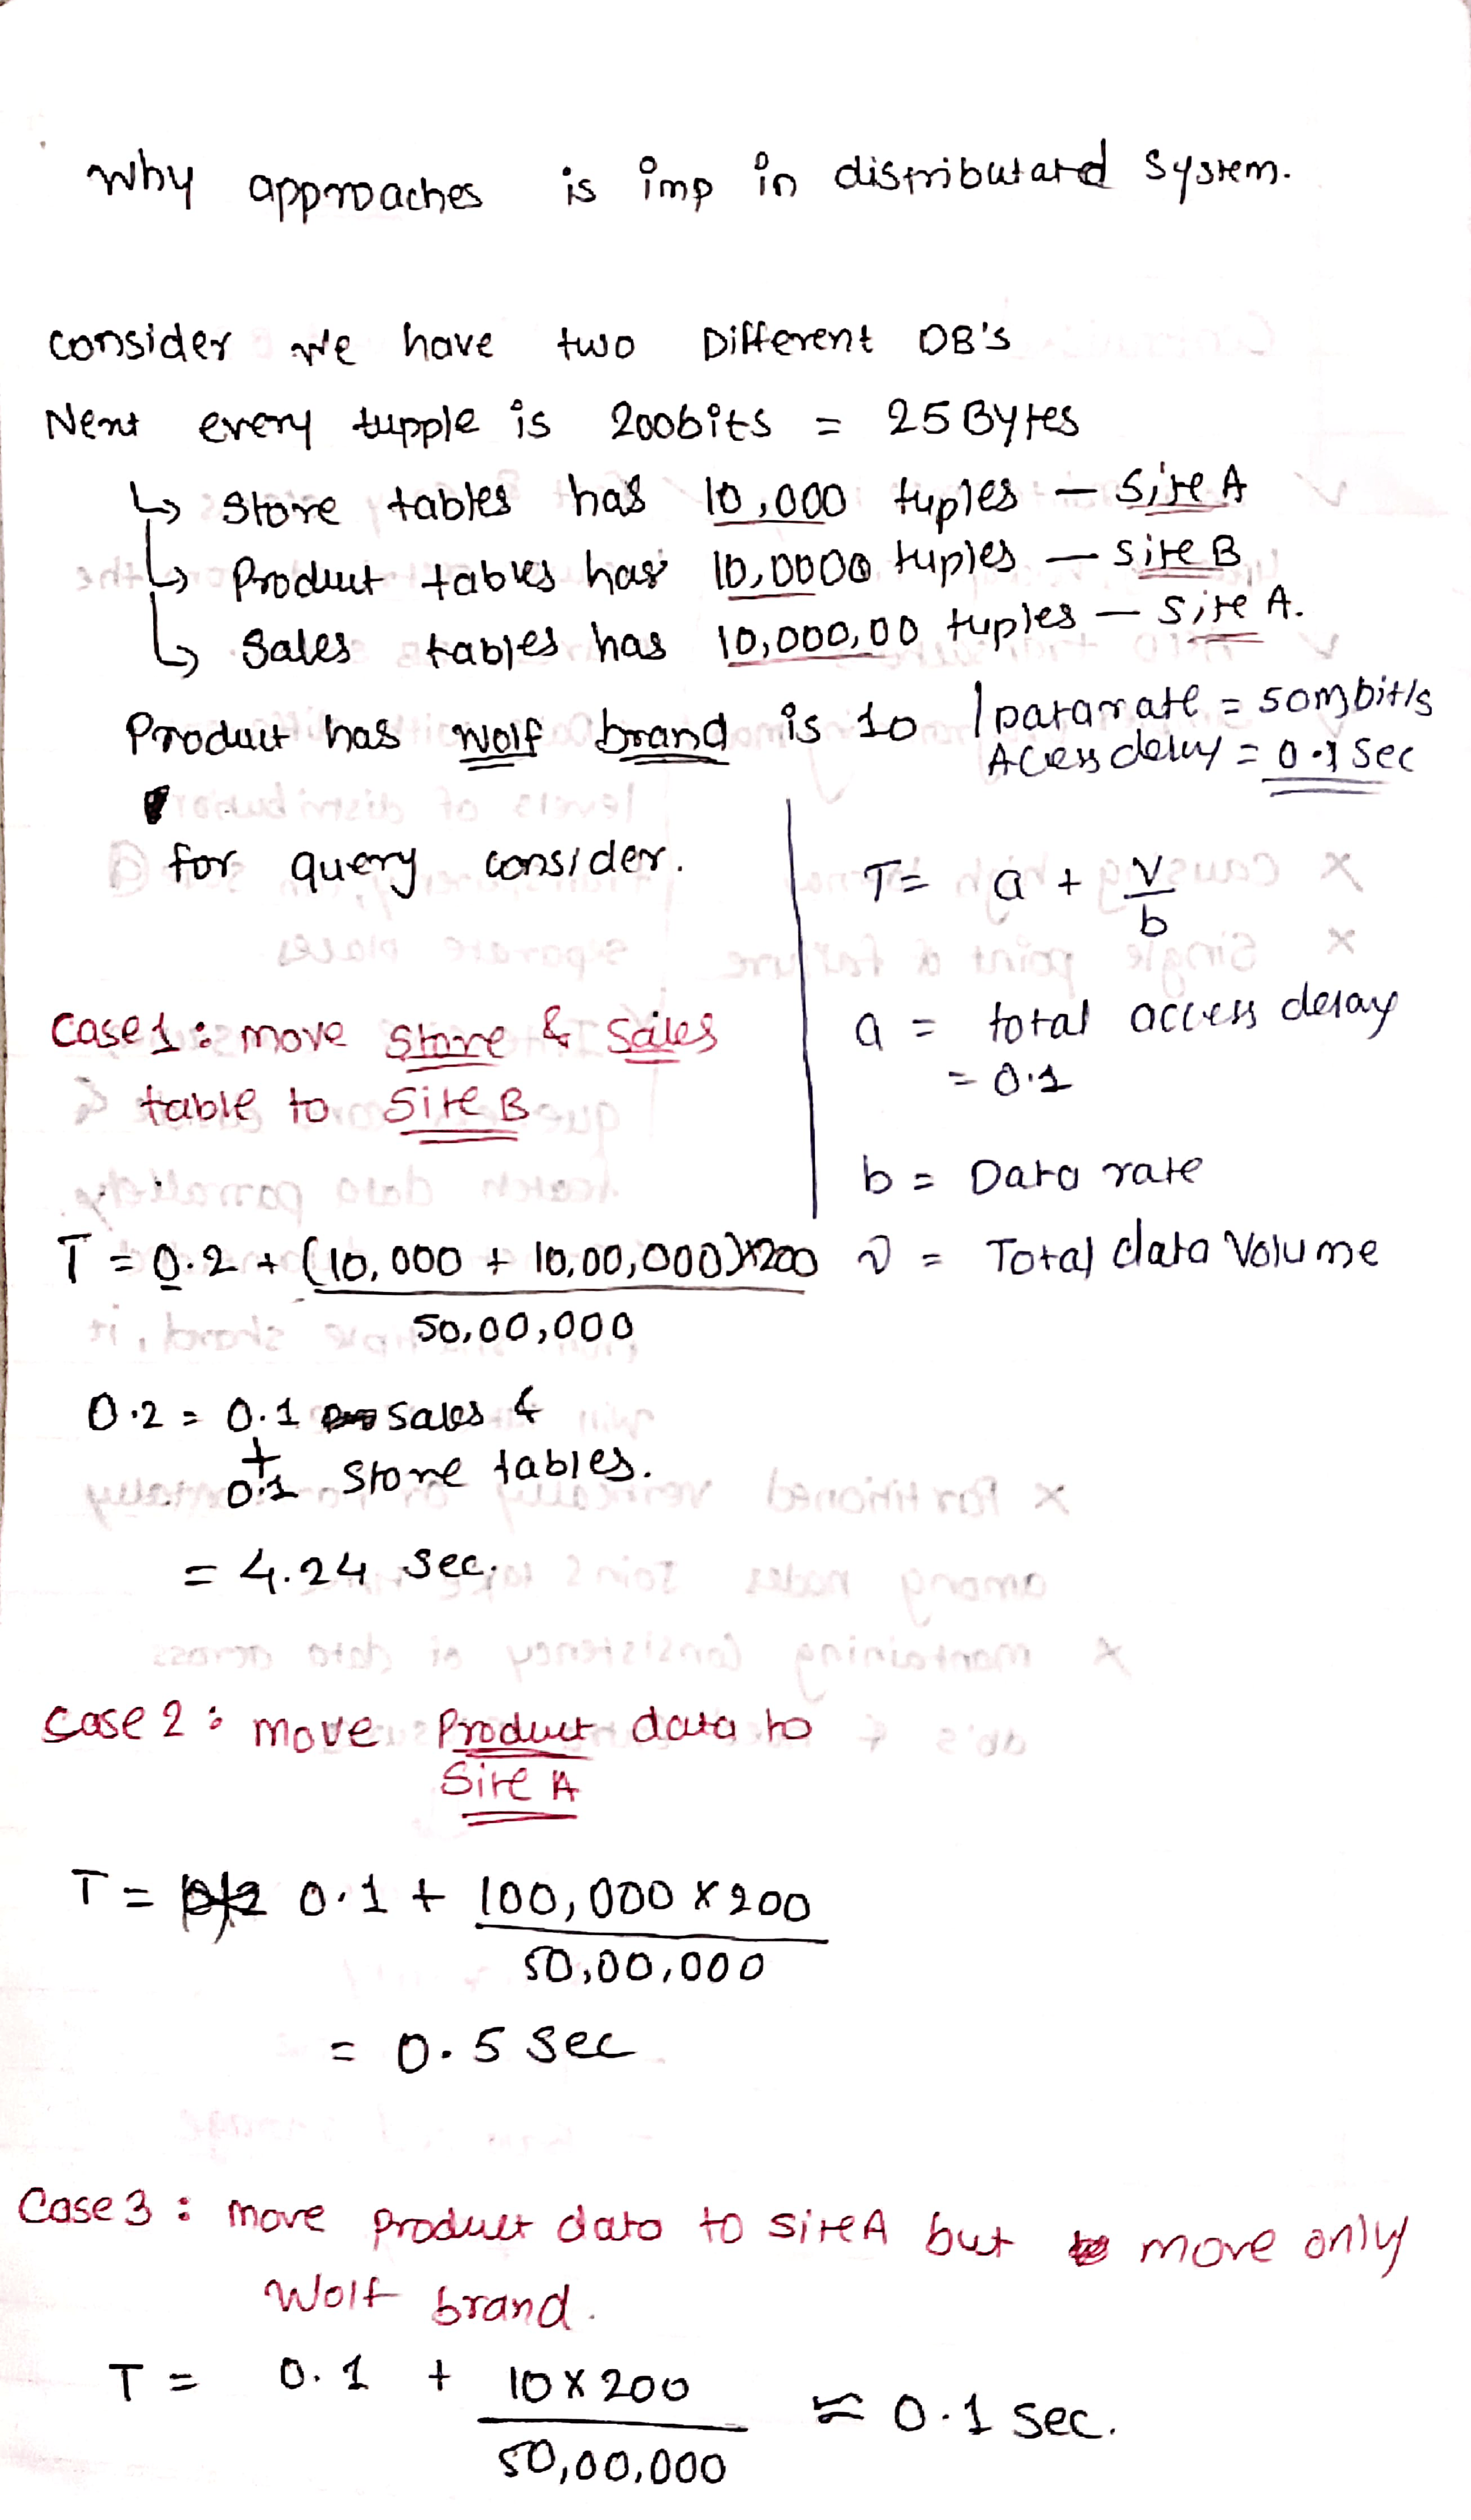 Why approaches is imp in distributated System.
consider we have two Different DB's
Next every tupple is 200bits = 25 Bytes
↳ Store tables has 10,000 tuples – Site A
↳ Product tables has 10,0000 tuples – Site B
↳ Sales tables has 10,000,00 tuples – Site A.
Product has Wolf brand is 10 | Datarate = 50mbit/s
Acess delay = 0.1 Sec
for query consider.
T = a + V/b
a = total access delay
= 0.1
b = Data rate
v = Total data Volume
Case 1 : move Store & Sales
table to Site B
T = 0.2 + (10,000 + 10,00,000)×200
50,00,000
0.2 = 0.1 Sales &
+
0.1 Store tables.
= 4.24 Sec.
Case 2 : move Product data to
Site A
T = 0.1 + 100,000 × 200
50,00,000
= 0.5 Sec
Case 3 : move product data to site A but move only
Wolf brand.
T = 0.1 + 10 × 200 ≈ 0.1 Sec.
50,00,000